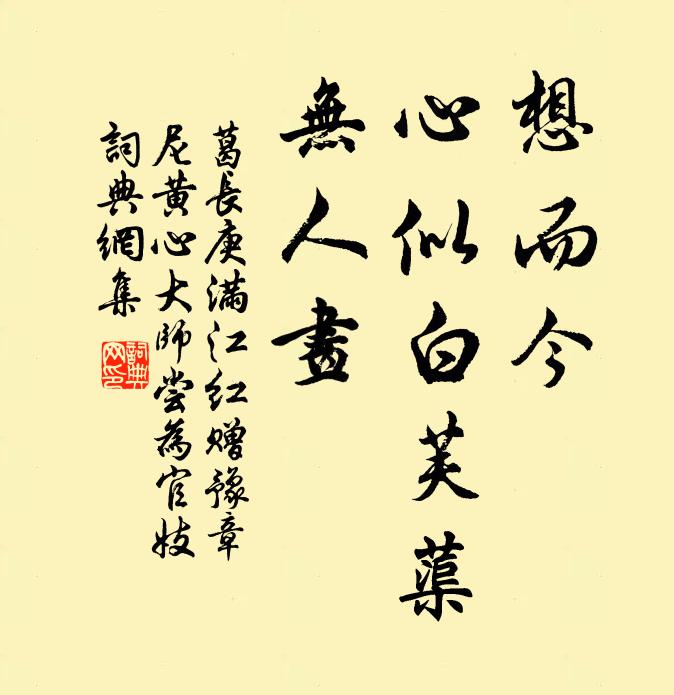 想而今
心似白芙蕖
無人畫
葛長庚滿江紅贈豫章
尼黄心大師嘗為官妓
詞典網集
詞典
网印